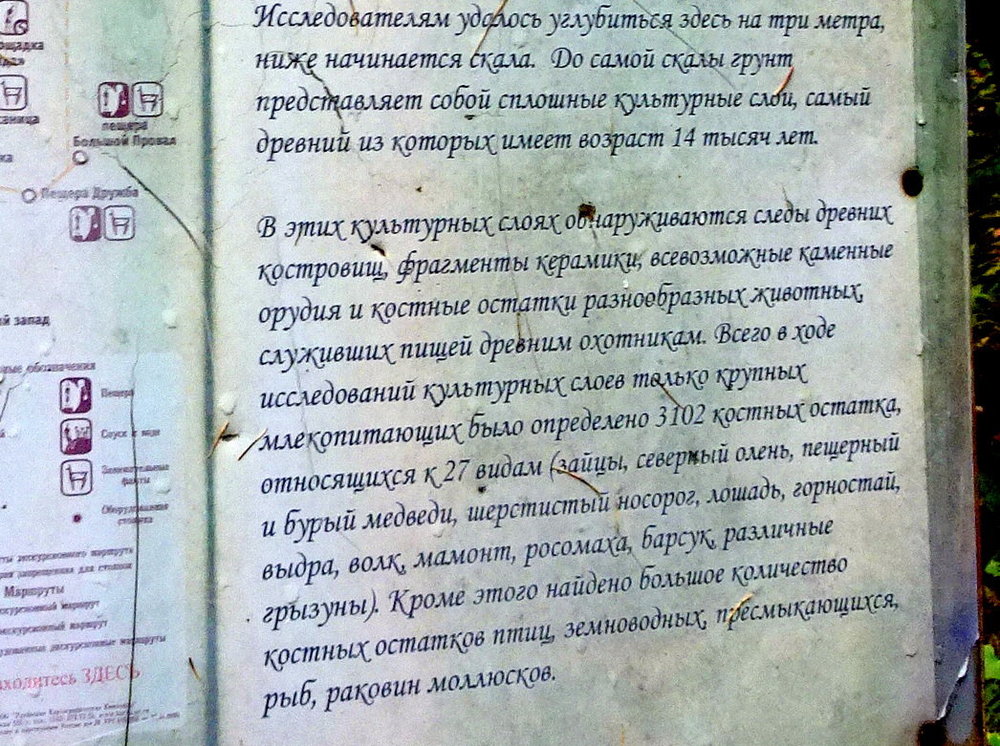 пещера
Большой Провал
Пещера Дружба
й запад
Пещера
Маршруты
ходитесь ЗДЕСЬ
Исследователям удалось углубиться здесь на три метра,
ниже начинается скала. До самой скалы грунт
представляет собой сплошные культурные слои, самый
древний из которых имеет возраст 14 тысяч лет.
В этих культурных слоях обнаруживаются следы древних
костровищ, фрагменты керамики, всевозможные каменные
орудия и костные остатки разнообразных животных,
служивших пищей древним охотникам. Всего в ходе
исследований культурных слоев только крупных
млекопитающих было определено 3102 костных остатка,
относящихся к 27 видам (зайцы, северный олень, пещерный
и бурый медведи, шерстистый носорог, лошадь, горностай,
выдра, волк, мамонт, росомаха, барсук, различные
грызуны). Кроме этого найдено большое количество
костных остатков птиц, земноводных, пресмыкающихся,
рыб, раковин моллюсков.